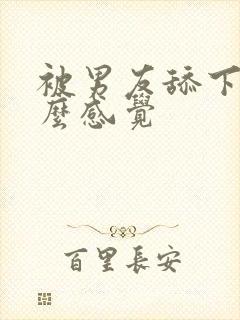 被男友舔下
麼感覺
百里長安